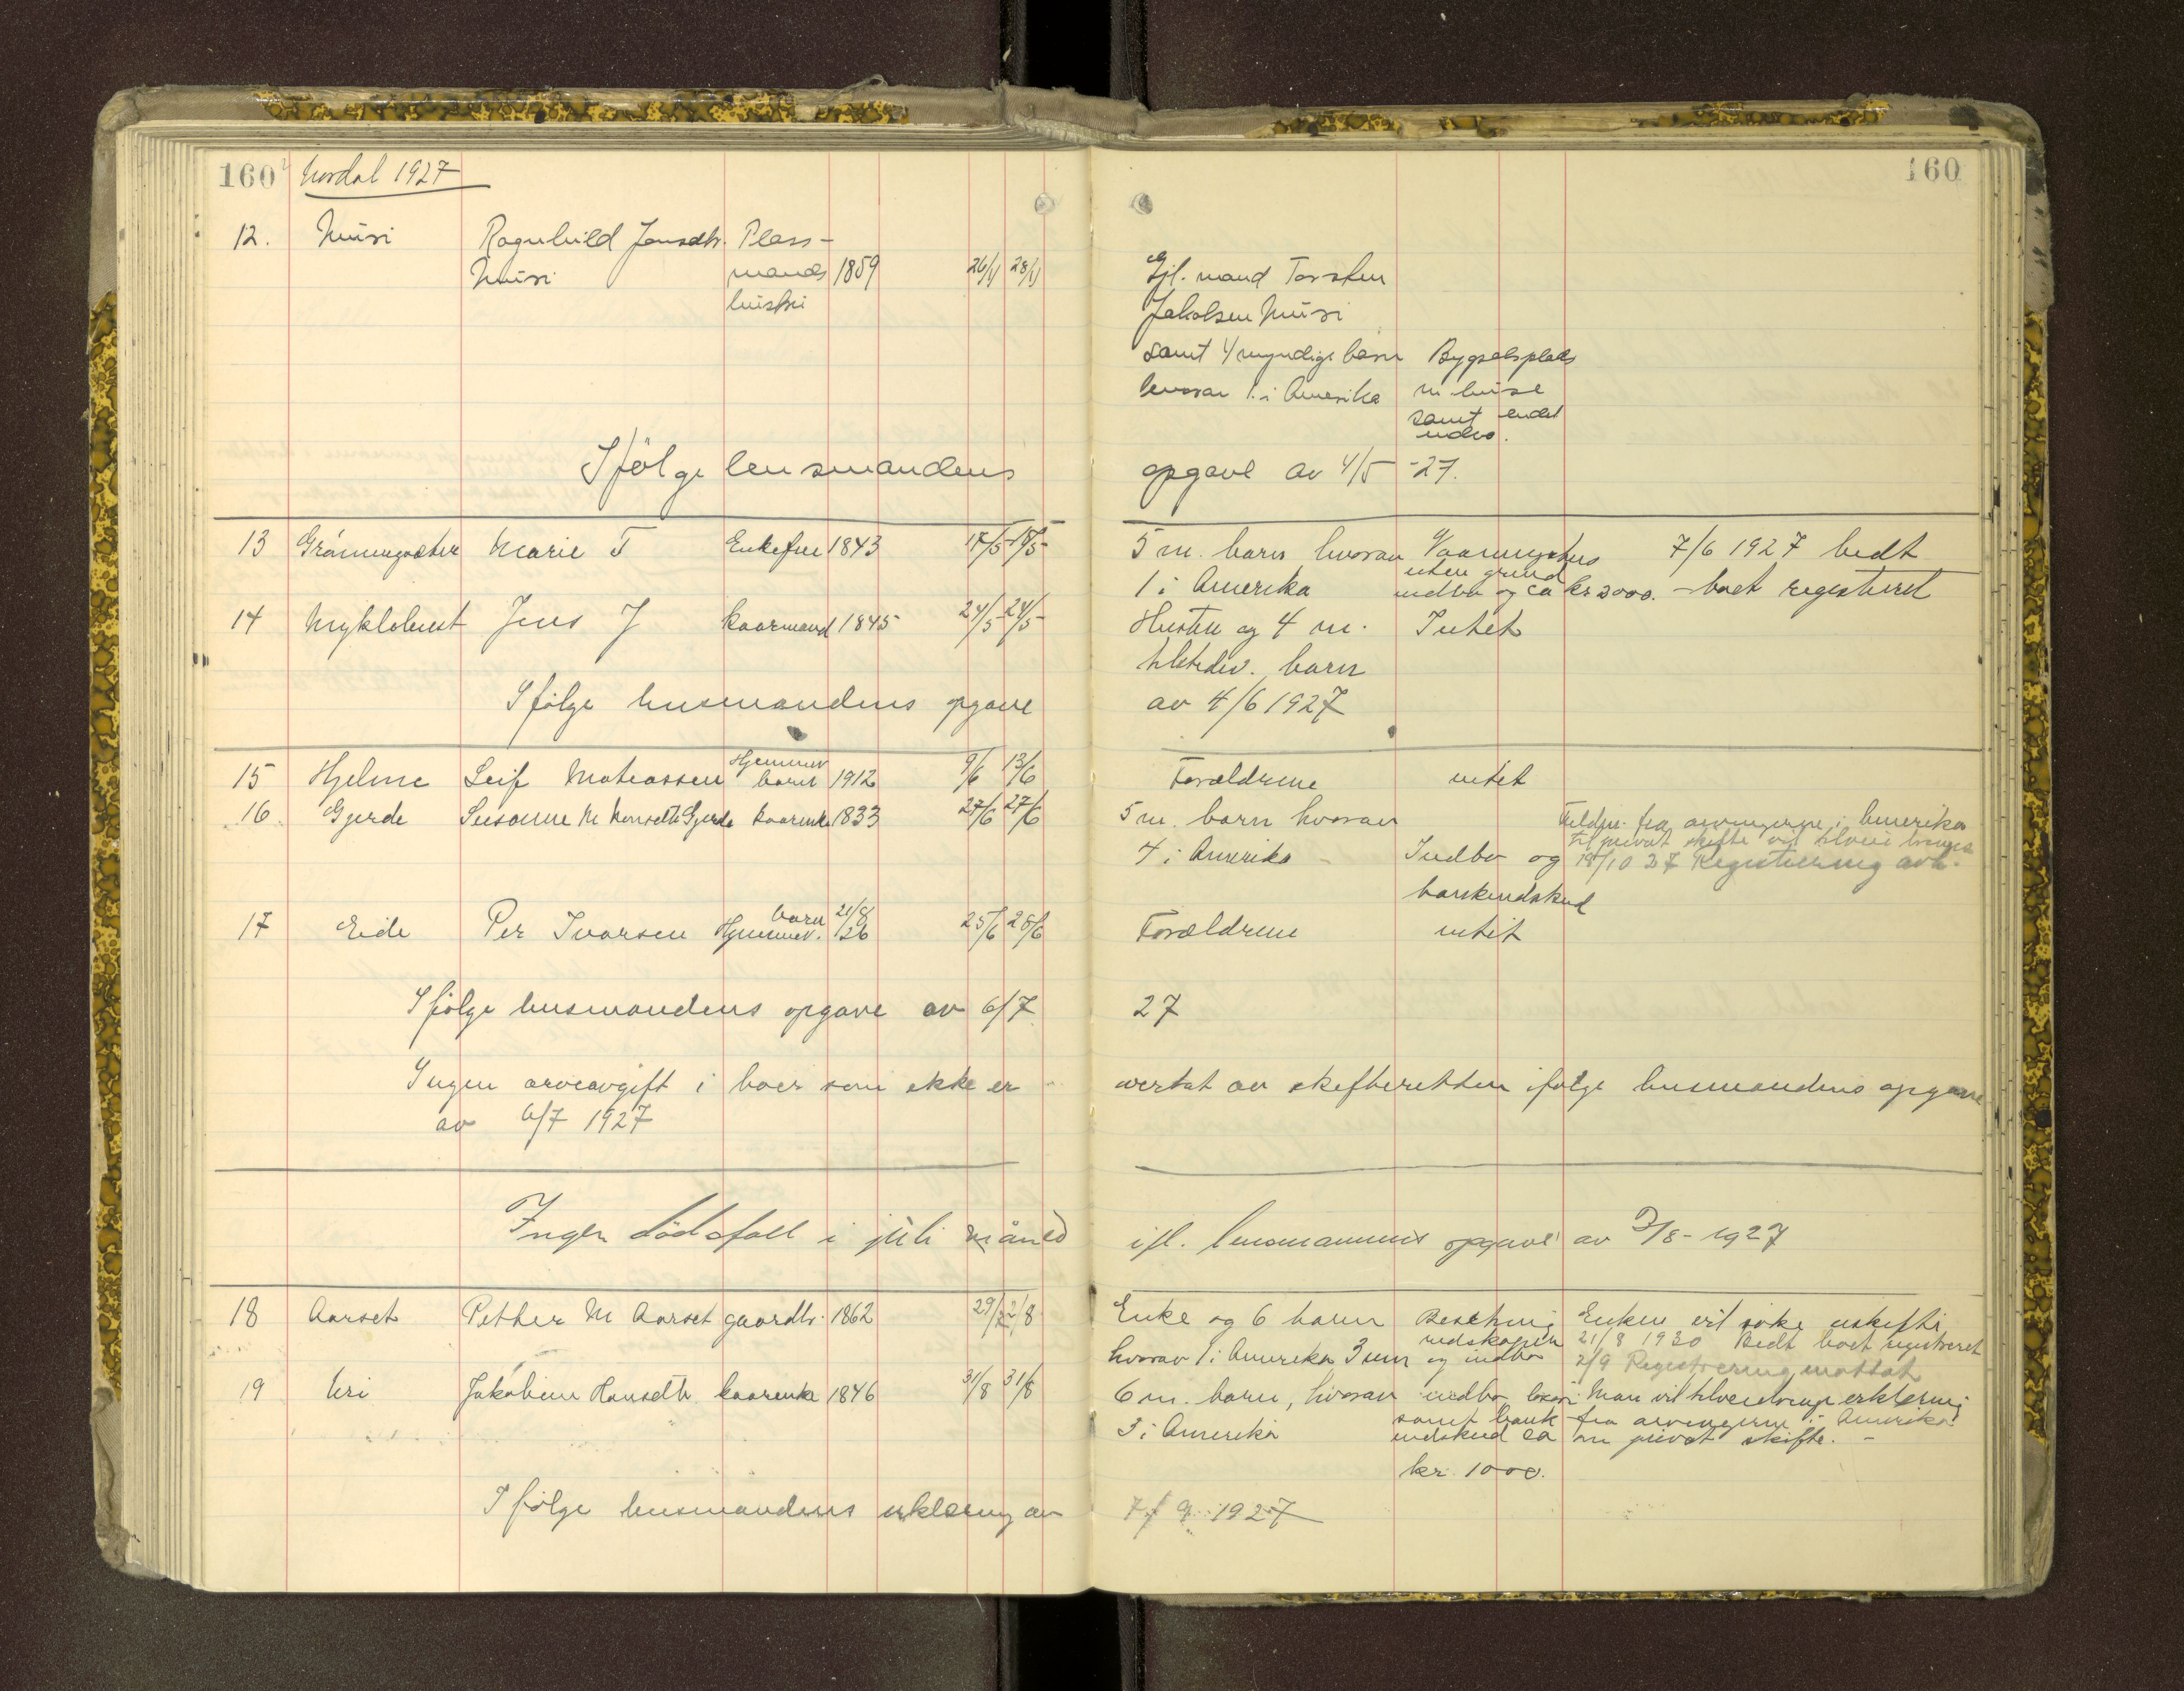 160 Nordal 1927 160
12. Muri Ragnhild Jensdtr. Plass-
Muri mands 1859 26/4 28/4 Gjl. mand Torsten
hustru Jakobsen Muri
samt 4 myndige barn Bygselsplads
hvorav 1 i Amerika m. huse
samt endel
indbo.
Ifölge lensmandens opgave av 4/5 -27.
13 Gröningsæter Marie T Enkefru 1843 17/5 18/5 5 m. barn hvorav Vaaningshus 7/6 1927 bedt
1 i Amerika uten grund
indbo og ca kr 2000. - boet registreret
14 Myklebust Jens J kaarmand 1845 24/5 24/5 Hustru og 4 m. Intet
tilstedev. barn
Ifölge lensmandens opgave av 4/6 1927
15 Hjelme Leif Mateassen Hjemmev. barn 1912 9/6 13/6 Forældrene intet
16 Gjerde Susanne M Monsdtr Gjerde kaarenke 1833 27/6 27/6 5 m. barn hvorav Fuldm. fra arvingerne i Amerika
til privat skifte vil tilveie bringes
4 i Amerika - Indbo og 19/10 27 Registrering avh.
bankindskud
17 Eide Per Ivarsen Hjemmev. barn 21/8 26 25/6 28/6 Forældrene intet
Ifölge lensmandens opgave av 6/7 27
Ingen arveavgift i boer som ikke er overtat av skifteretten ifölge lensmandens opgave
av 6/7 1927
Ingen dödsfall i juli måned ifl. lensmannens opgave av 3/8 - 1927
18 Aarset Petter M Aarset gaardbr. 1862 29/7 2/8 Enke og 6 barn Besetning Enken vil söke uskifte
redskapen 21/8 1930 Bedt boet registreret
hvorav 1 i Amerika 3 um og indbo 2/9 Registrering mottat
19 Uri Jakobine Hansdtr kaarenke 1846 31/8 31/8 6 m. barn, hvorav indbo lösöre Man vil tilveiebringe erklæring
samt bank- fra arvingerne i Amerika
3 i Amerika indskud ca om privat skifte. -
kr. 1000.
Ifölge lensmandens erklæring av 7/9 1927